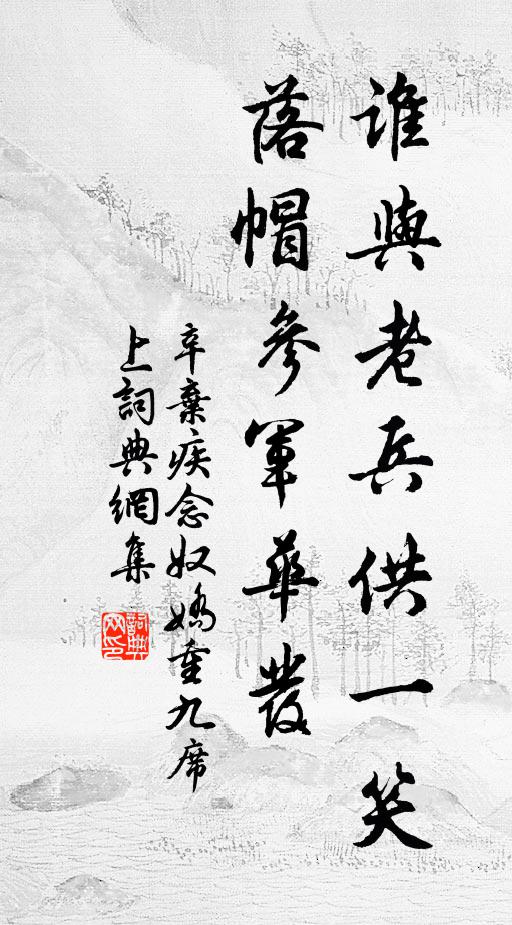 誰與老兵供一笑
落帽參軍華發
辛棄疾念奴嬌重九席
上詞典網集
詞典
网印